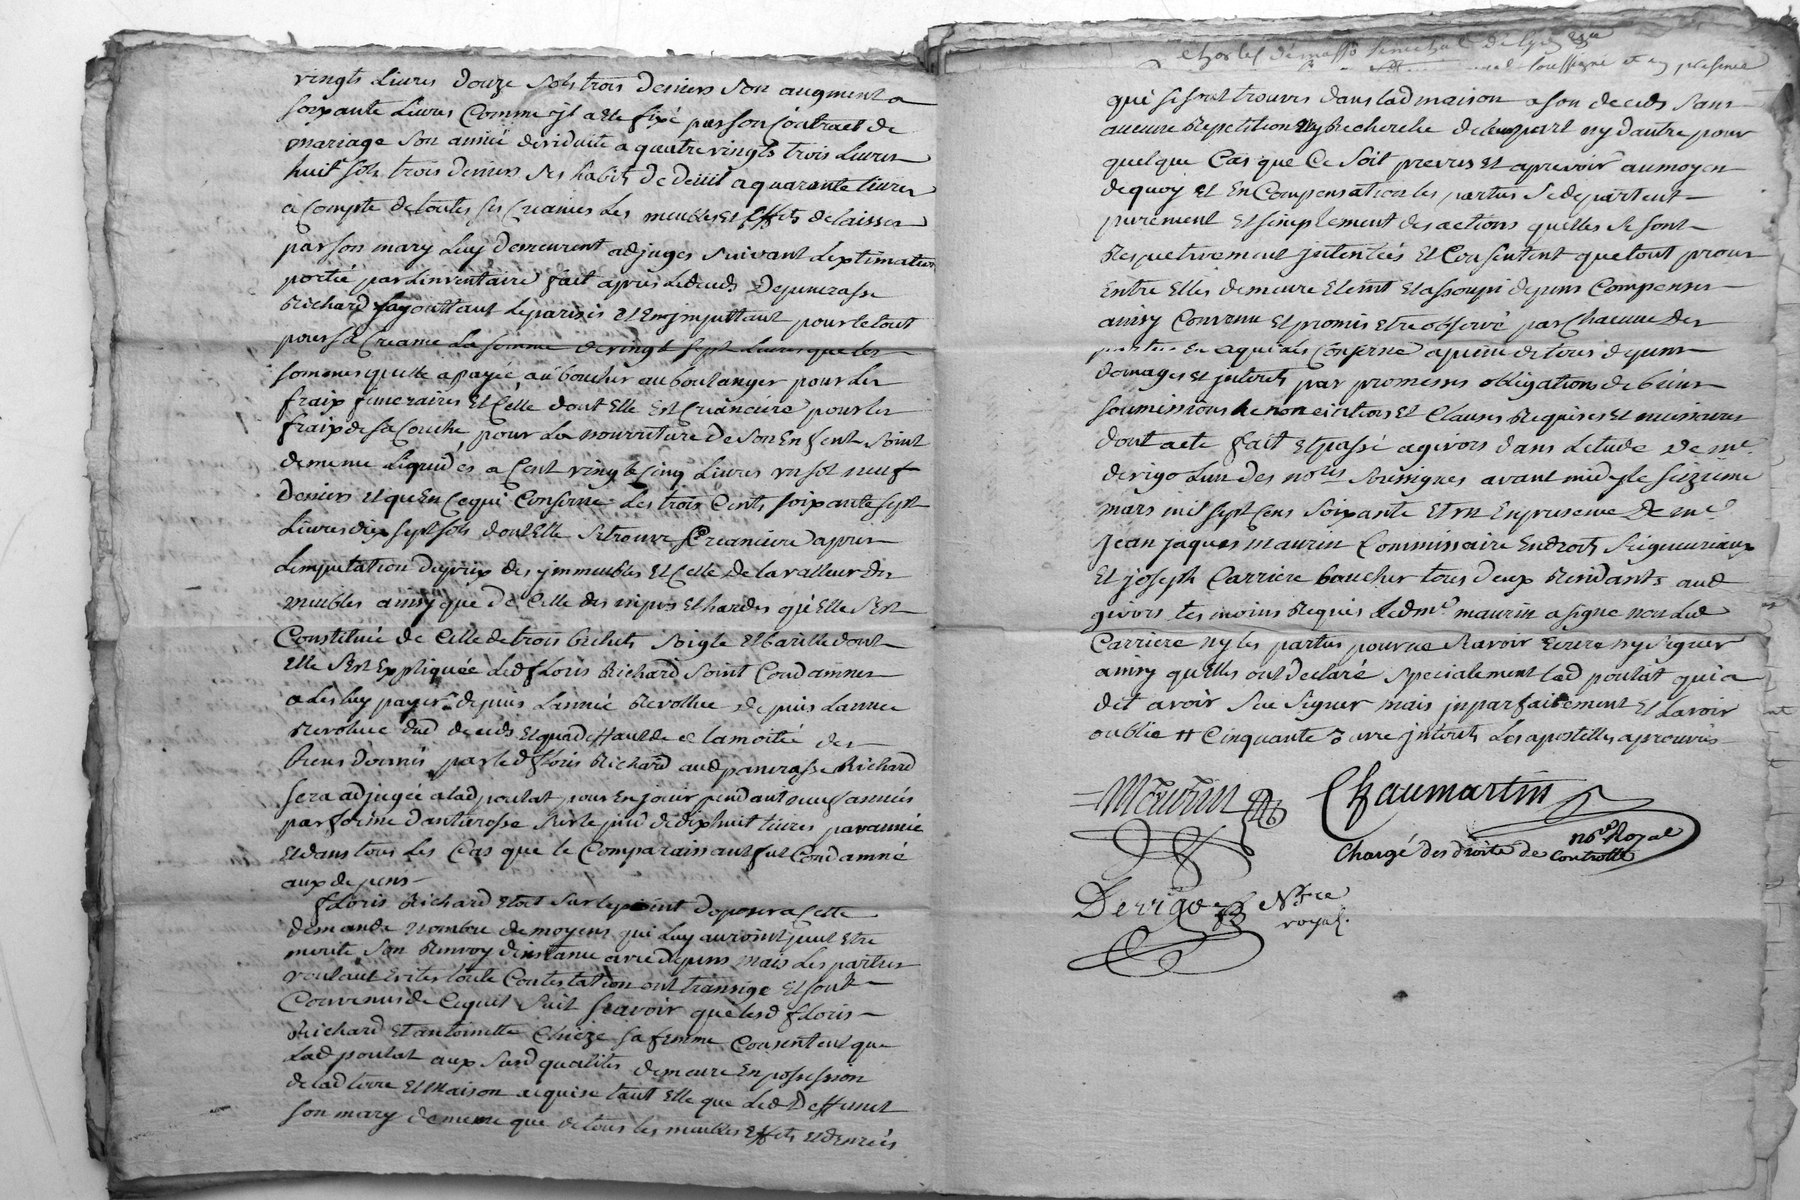 vingts Livres douze sols trois deniers son augment a
soixante Livres Comme jl a ete fixé par son Contract de
mariage son année de viduité a quatre vingts trois Livres
huit sols trois deniers ses habits de deuil a quarante livres
a Compte de toutes ses Creances Les meubles et Effets delaisses
par son mary Luy demeurent adjuges suivant Lextimation
portée par Linventaire fait apres Le deceds de pancrasse
Richard Lajouttant Le parisis et En jmputtant pour le tout
pour sa Creance La somme de vingt sept Livres que les
sommes quelle a payée au boucher au boulanger pour Les
fraix funeraires et Celle dont Elle Est Creanciere pour les
fraix de sa Couche, pour La nourriture de son Enfent soint
de meme Liquidés a Cent vingt Cinq Livres un sol neuf
deniers et qu En Ce qui Conserne Les trois Cents soixante sept
Livres dix sept sols dont Elle se trouve Creanciere apres
Limputation du prix des jmmeubles et Celle de La valleur des
meubles ainsy que de Celle des nipes et hardes qu'Elle s'Est
Constituée de Celle de trois bichets soigle et barille dont
Elle s'Est Expliquée Led floris Richard soint Condamner
a Les luy payer depuis Lannée Revollue depuis Lannee
Revolue dud deceds et qua deffault de ce la moitié des
biens donnés par led floris Richard aud pancrasse Richard
sera adjugée a lad poulat pour En jouir pendant neuf années
par forme d'antichresse sur le pied de dix huit livres par année
et dans tous Les Cas que le Comparaissant fut Condamné
aux depens
floris Richard etoit sur le point d'oposer a Cette
demande nombre de moyens qui Luy auroint peut Etre
merité son Renvoy d'instance avec depens mais Les parties
voulant Eviter toute Contestation ont transige et sont
Convenus de Ce qui suit scavoir que lesd floris
Richard et antoinette Chieze sa femme Consentent que
Lad poulat aux susd qualités demeure En possession
de lad terre et maison acquise tant Elle que Led deffunct
son mary de meme que de tous les meubles Effets et denrées
Charles de masso senechal de Lyon
soussigné et en presence
qui se sont trouves dans lad maison a son deceds sans
aucune Repetition ny Recherche de leur part ny d'autre pour
quelque Cas que Ce soit prevus et a prevoir au moyen
de quoy et En Compensation les parties se departent
purement et simplement des actions quelles se sont
Respectivement jntentées et Consentent que tout proces
Entre Elles demeure Eteint et assoupi depens Compenses
ainsy Convenu et promis etre observé par Chacune des
parties En ce qui les Conserne a peine de tous depens
domages et jnterets par promesses obligations de biens
soumissions Renonciations et Clauses Requises et necessaires
dont acte fait et passé a givors dans L'etude de me
derigo L'un des nores soussignes avant midy le seizieme
mars mil sept cens soixante et un En presence de me
Jean jaques maurin Commissaire En droits seigneuriaux
et joseph Carriere boucher tous deux Residants aud
givors temoins Requis Led me maurin a signe non Led
Carriere ny les parties pour ne scavoir Ecrire ny signer
ainsy qu'Elles ont declaré specialement Lad poulat qui a
dit avoir sceu signer mais jnparfaitement et Lavoir
oublie # Cinquante jnterets Les apostilles aprouvés
Maurin Chaumartin
nore Royal
Chargé des droits de Controlle
Derigo Nore
royal.